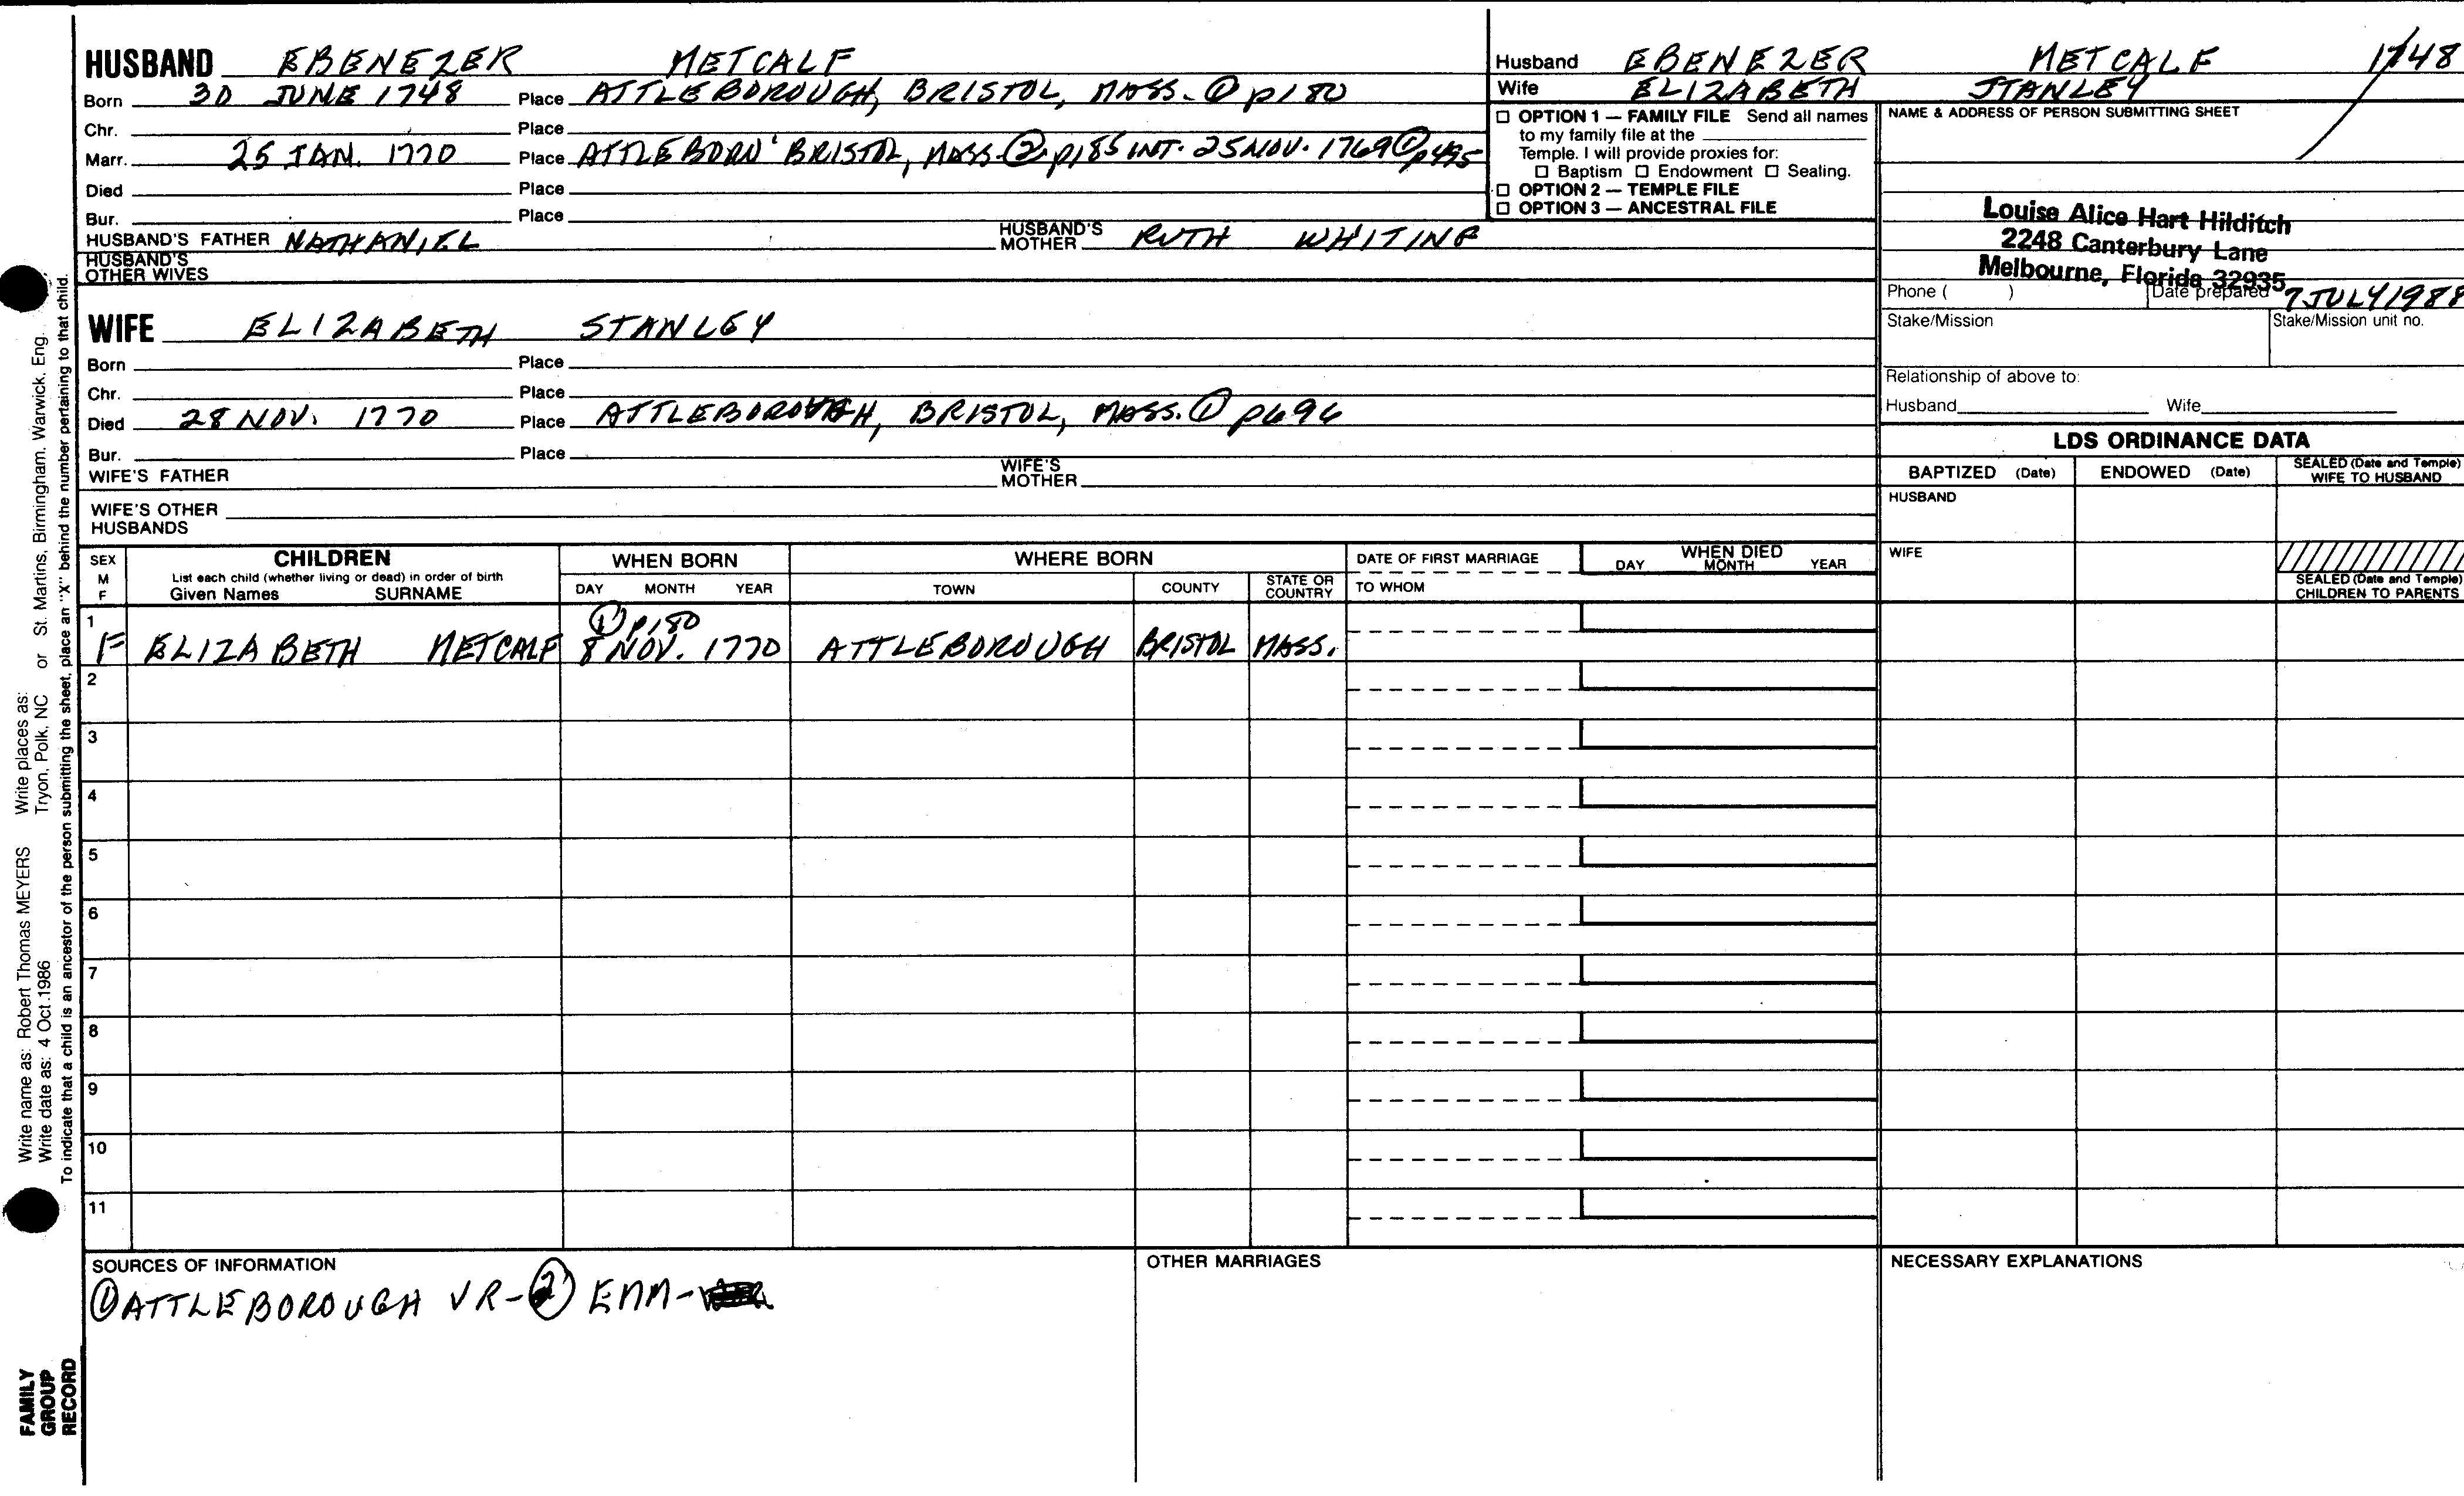 HUSBAND EBENEZER METCALF
Born 30 JUNE 1748 Place ATTLEBOROUGH, BRISTOL, MASS. ① p180
Chr. Place
Marr. 25 JAN. 1770 Place ATTLEBORO' BRISTOL, MASS. ② p185 INT. 25 NOV. 1769 ① p495
Died Place
Bur. Place
HUSBAND'S FATHER NATHANIEL HUSBAND'S MOTHER RUTH WHITING
HUSBAND'S OTHER WIVES
WIFE ELIZABETH STANLEY
Born Place
Chr. Place
Died 28 NOV. 1770 Place ATTLEBOROUGH, BRISTOL, MASS. ① p696
Bur. Place
WIFE'S FATHER WIFE'S MOTHER
WIFE'S OTHER HUSBANDS
Husband EBENEZER METCALF 1748
Wife ELIZABETH STANLEY
☐ OPTION 1 — FAMILY FILE Send all names
to my family file at the
Temple. I will provide proxies for:
☐ Baptism ☐ Endowment ☐ Sealing.
☐ OPTION 2 — TEMPLE FILE
☐ OPTION 3 — ANCESTRAL FILE
NAME & ADDRESS OF PERSON SUBMITTING SHEET
Louise Alice Hart Hilditch
2248 Canterbury Lane
Melbourne, Florida 32935
Phone ( ) Date prepared 7 JULY 1988
Stake/Mission Stake/Mission unit no.
Relationship of above to:
Husband Wife
LDS ORDINANCE DATA
BAPTIZED (Date) ENDOWED (Date) SEALED (Date and Temple) WIFE TO HUSBAND
HUSBAND
WIFE
SEALED (Date and Temple) CHILDREN TO PARENTS
SEX M F CHILDREN WHEN BORN WHERE BORN DATE OF FIRST MARRIAGE WHEN DIED
List each child (whether living or dead) in order of birth
Given Names SURNAME DAY MONTH YEAR TOWN COUNTY STATE OR COUNTRY TO WHOM DAY MONTH YEAR
1 ① p180
F ELIZABETH METCALF 8 NOV. 1770 ATTLEBOROUGH BRISTOL MASS.
2
3
4
5
6
7
8
9
10
11
SOURCES OF INFORMATION OTHER MARRIAGES NECESSARY EXPLANATIONS
① ATTLEBOROUGH VR - ② EMM -
Write name as: Robert Thomas MEYERS Write places as:
Write date as: 4 Oct. 1986 Tryon, Polk, NC or St. Martins, Birmingham, Warwick, Eng.
To indicate that a child is an ancestor of the person submitting the sheet, place an "X" behind the number pertaining to that child.
FAMILY
GROUP
RECORD